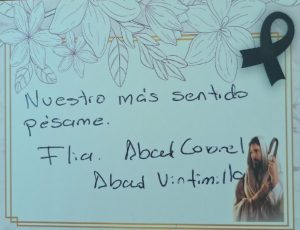 Nuestro más sentido
pésame.
Flia. Abad Coronel
Abad Vintimilla